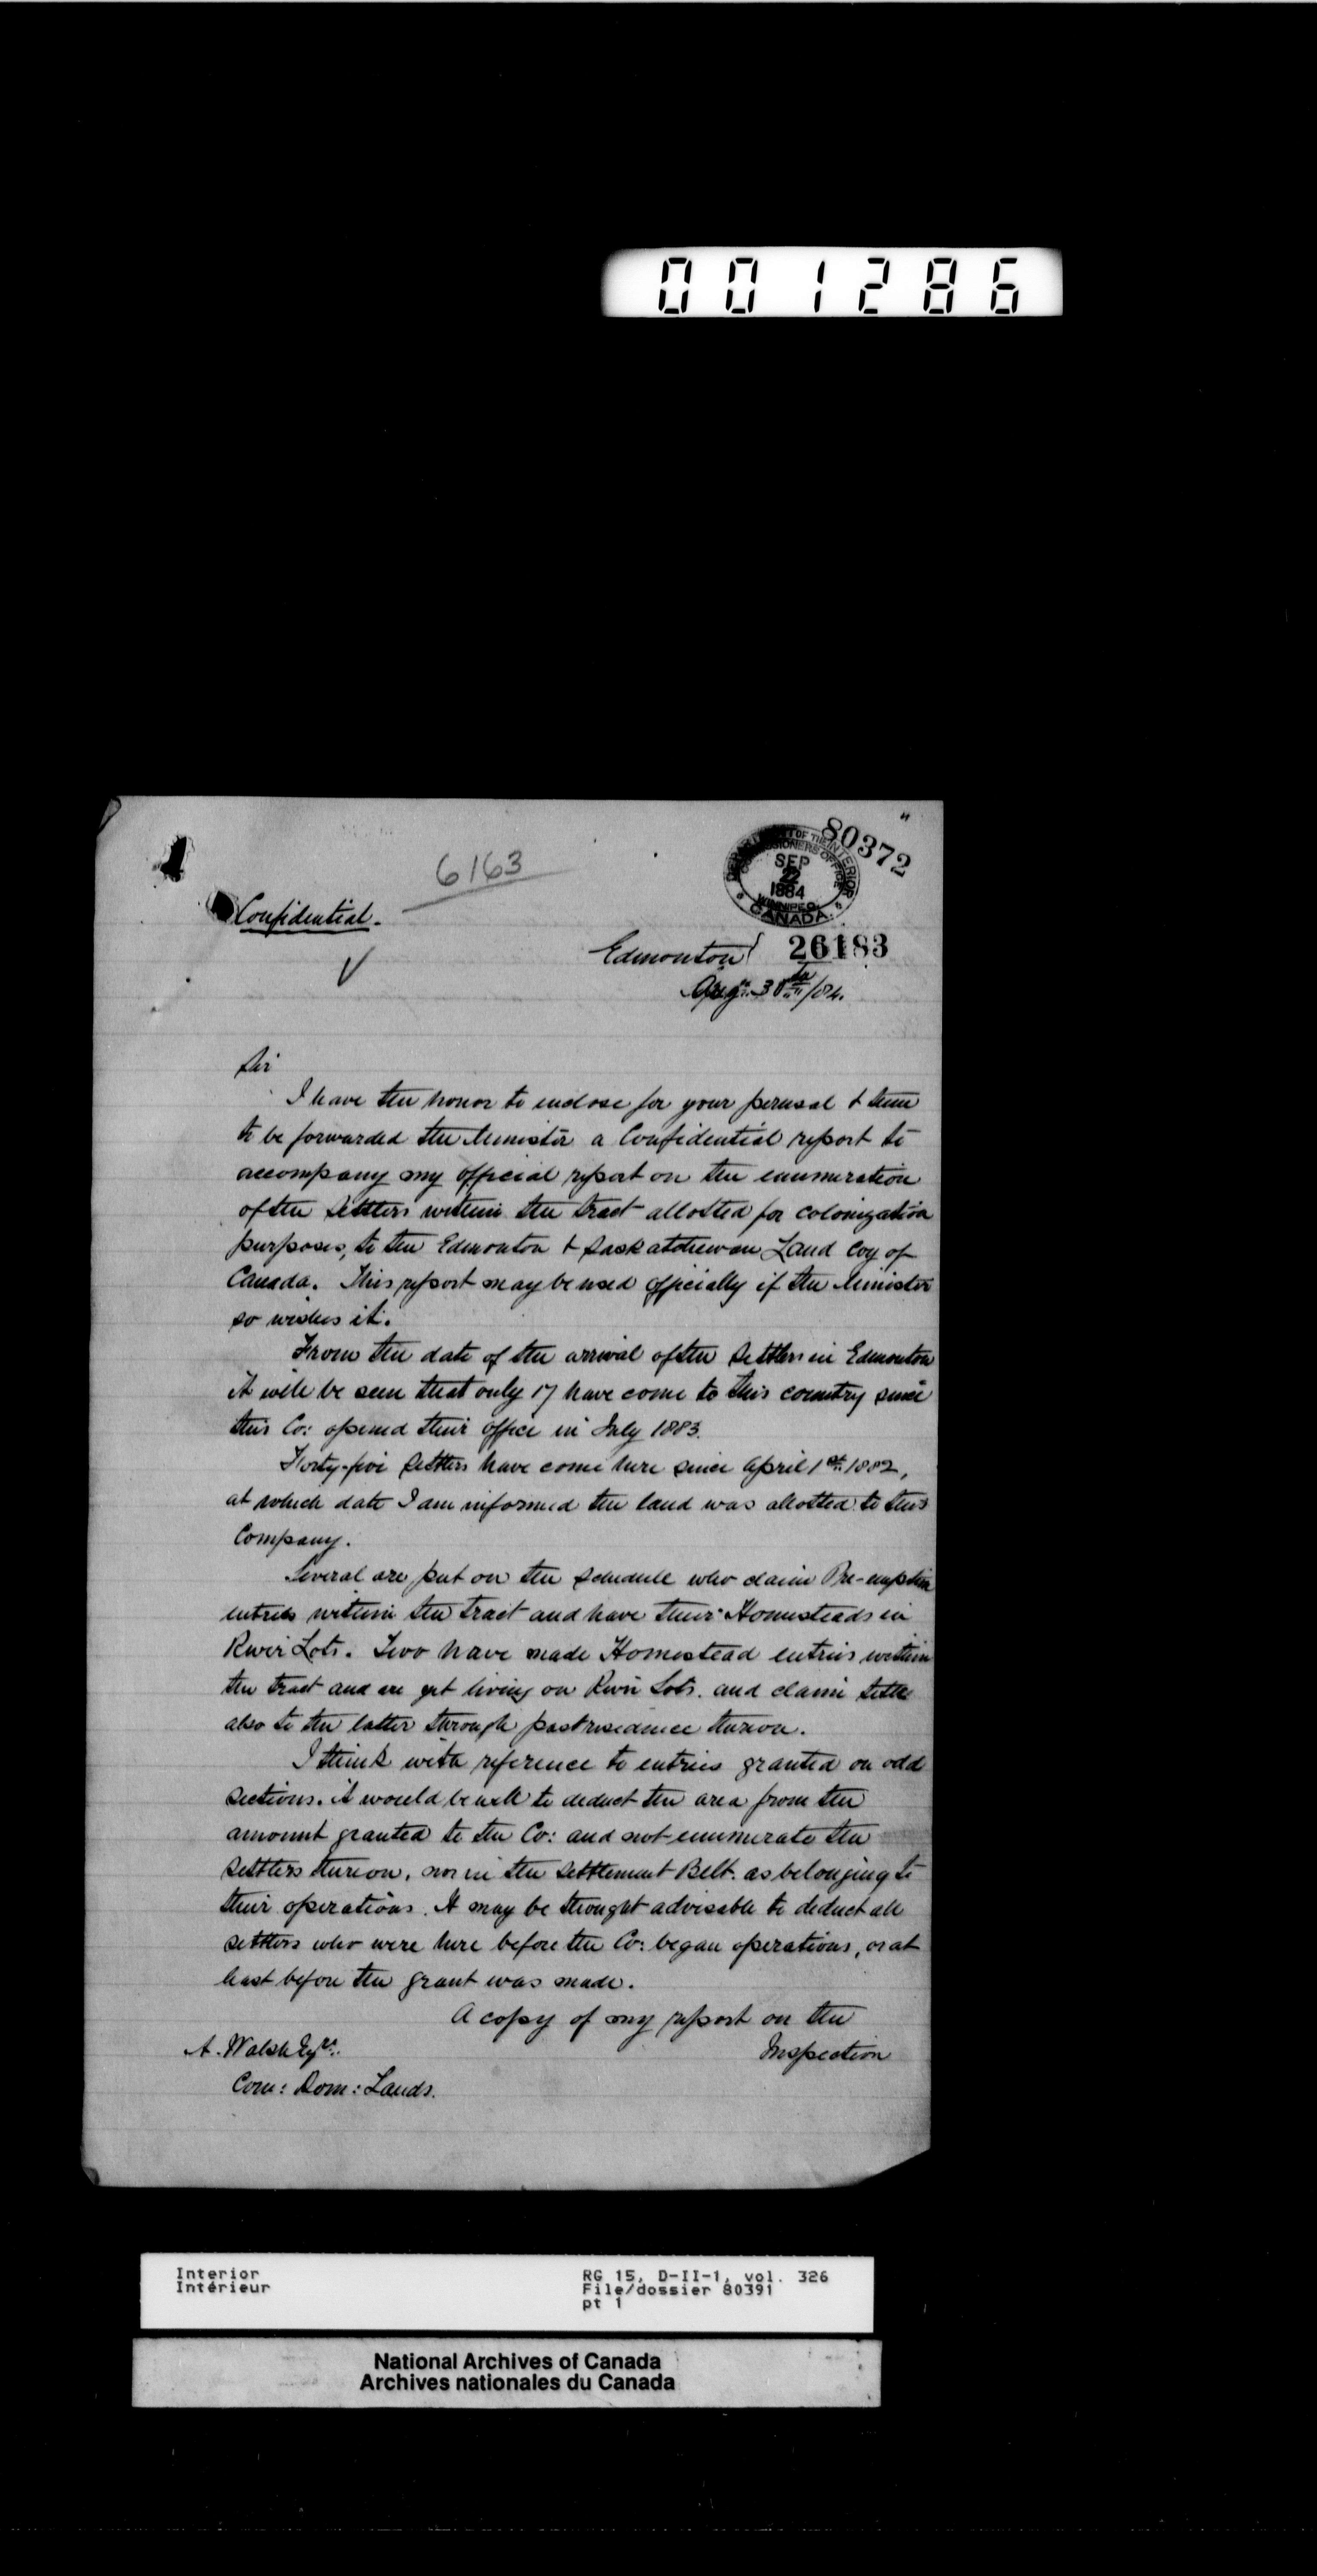 001286
80372
DEPARTMENT OF THE INTERIOR
COMMISSIONERS OFFICE
SEP
2
1884
WINNIPEG
CANADA.
6163
Confidential.
26183
Edmonton
Aug. 30th/84.
Sir
I have the honor to enclose for your perusal & then
to be forwarded the Minister a Confidential report to
accompany my official report on the enumeration
of the settlers within the tract allotted for colonization
purposes, to the Edmonton & Saskatchewan Land Coy of
Canada. This report may be used officially if the Minister
so wishes it.
From the date of the arrival of the settlers in Edmonton
it will be seen that only 17 have come to this country since
this Co: opened their office in July 1883.
Forty-five settlers have come here since April 1st 1882,
at which date I am informed the land was allotted to this
Company.
Several are put on the schedule who claim Pre-emption
entries within the tract and have their Homesteads in
River Lots. Two have made Homestead entries within
the tract and are yet living on River Lots. and claim title
also to the latter through past residence thereon.
I think with reference to entries granted on odd
sections. it would be well to deduct the area from the
amount granted to the Co: and not enumerate the
settlers thereon, nor in the settlement Belt. as belonging to
their operations. It may be thought advisable to deduct all
settlers who were here before the Co: began operations, or at
least before the grant was made.
A copy of my report on the
Inspection
A. Walsh Esqre.
Com: Dom: Lands.
Interior
Intérieur
RG 15, D-II-1, vol. 326
File/dossier 80391
pt 1
National Archives of Canada
Archives nationales du Canada